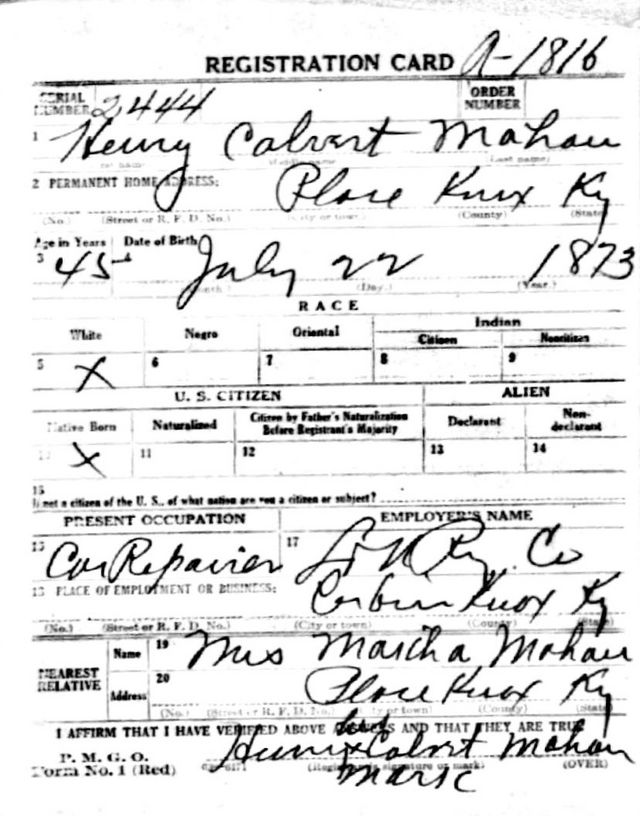 REGISTRATION CARD A-1816
SERIAL NUMBER 2444 ORDER NUMBER
1 Henry Calvert Mahan
(Middle name) (Last name)
2 PERMANENT HOME ADDRESS: Place Knox Ky
(No.) (Street or R. F. D. No.) (City or town) (County) (State)
Age in Years Date of Birth
3 45 4 July 22 1873
(Month) (Day.) (Year.)
RACE
White Negro Oriental Indian
Citizen Noncitizen
5 X 6 7 8 9
U. S. CITIZEN ALIEN
Native Born Naturalized Citizen by Father's Naturalization Before Registrant's Majority Declarant Non-declarant
10 X 11 12 13 14
15
If not a citizen of the U. S., of what nation are you a citizen or subject?
PRESENT OCCUPATION EMPLOYER'S NAME
16 Car Repairer 17 L & N Ry. Co
18 PLACE OF EMPLOYMENT OR BUSINESS: Corbin Knox Ky
(No.) (Street or R. F. D. No.) (City or town) (County) (State)
NEAREST RELATIVE Name 19 Mrs Martha Mahan
Address 20 Place Knox Ky
(No.) (Street or R. F. D. No.) (City or town) (County) (State)
I AFFIRM THAT I HAVE VERIFIED ABOVE ANSWERS AND THAT THEY ARE TRUE
his
P. M. G. O. Henry x Calvert Mahan
Form No. 1 (Red) (Registrant's signature or mark) (OVER)
mark